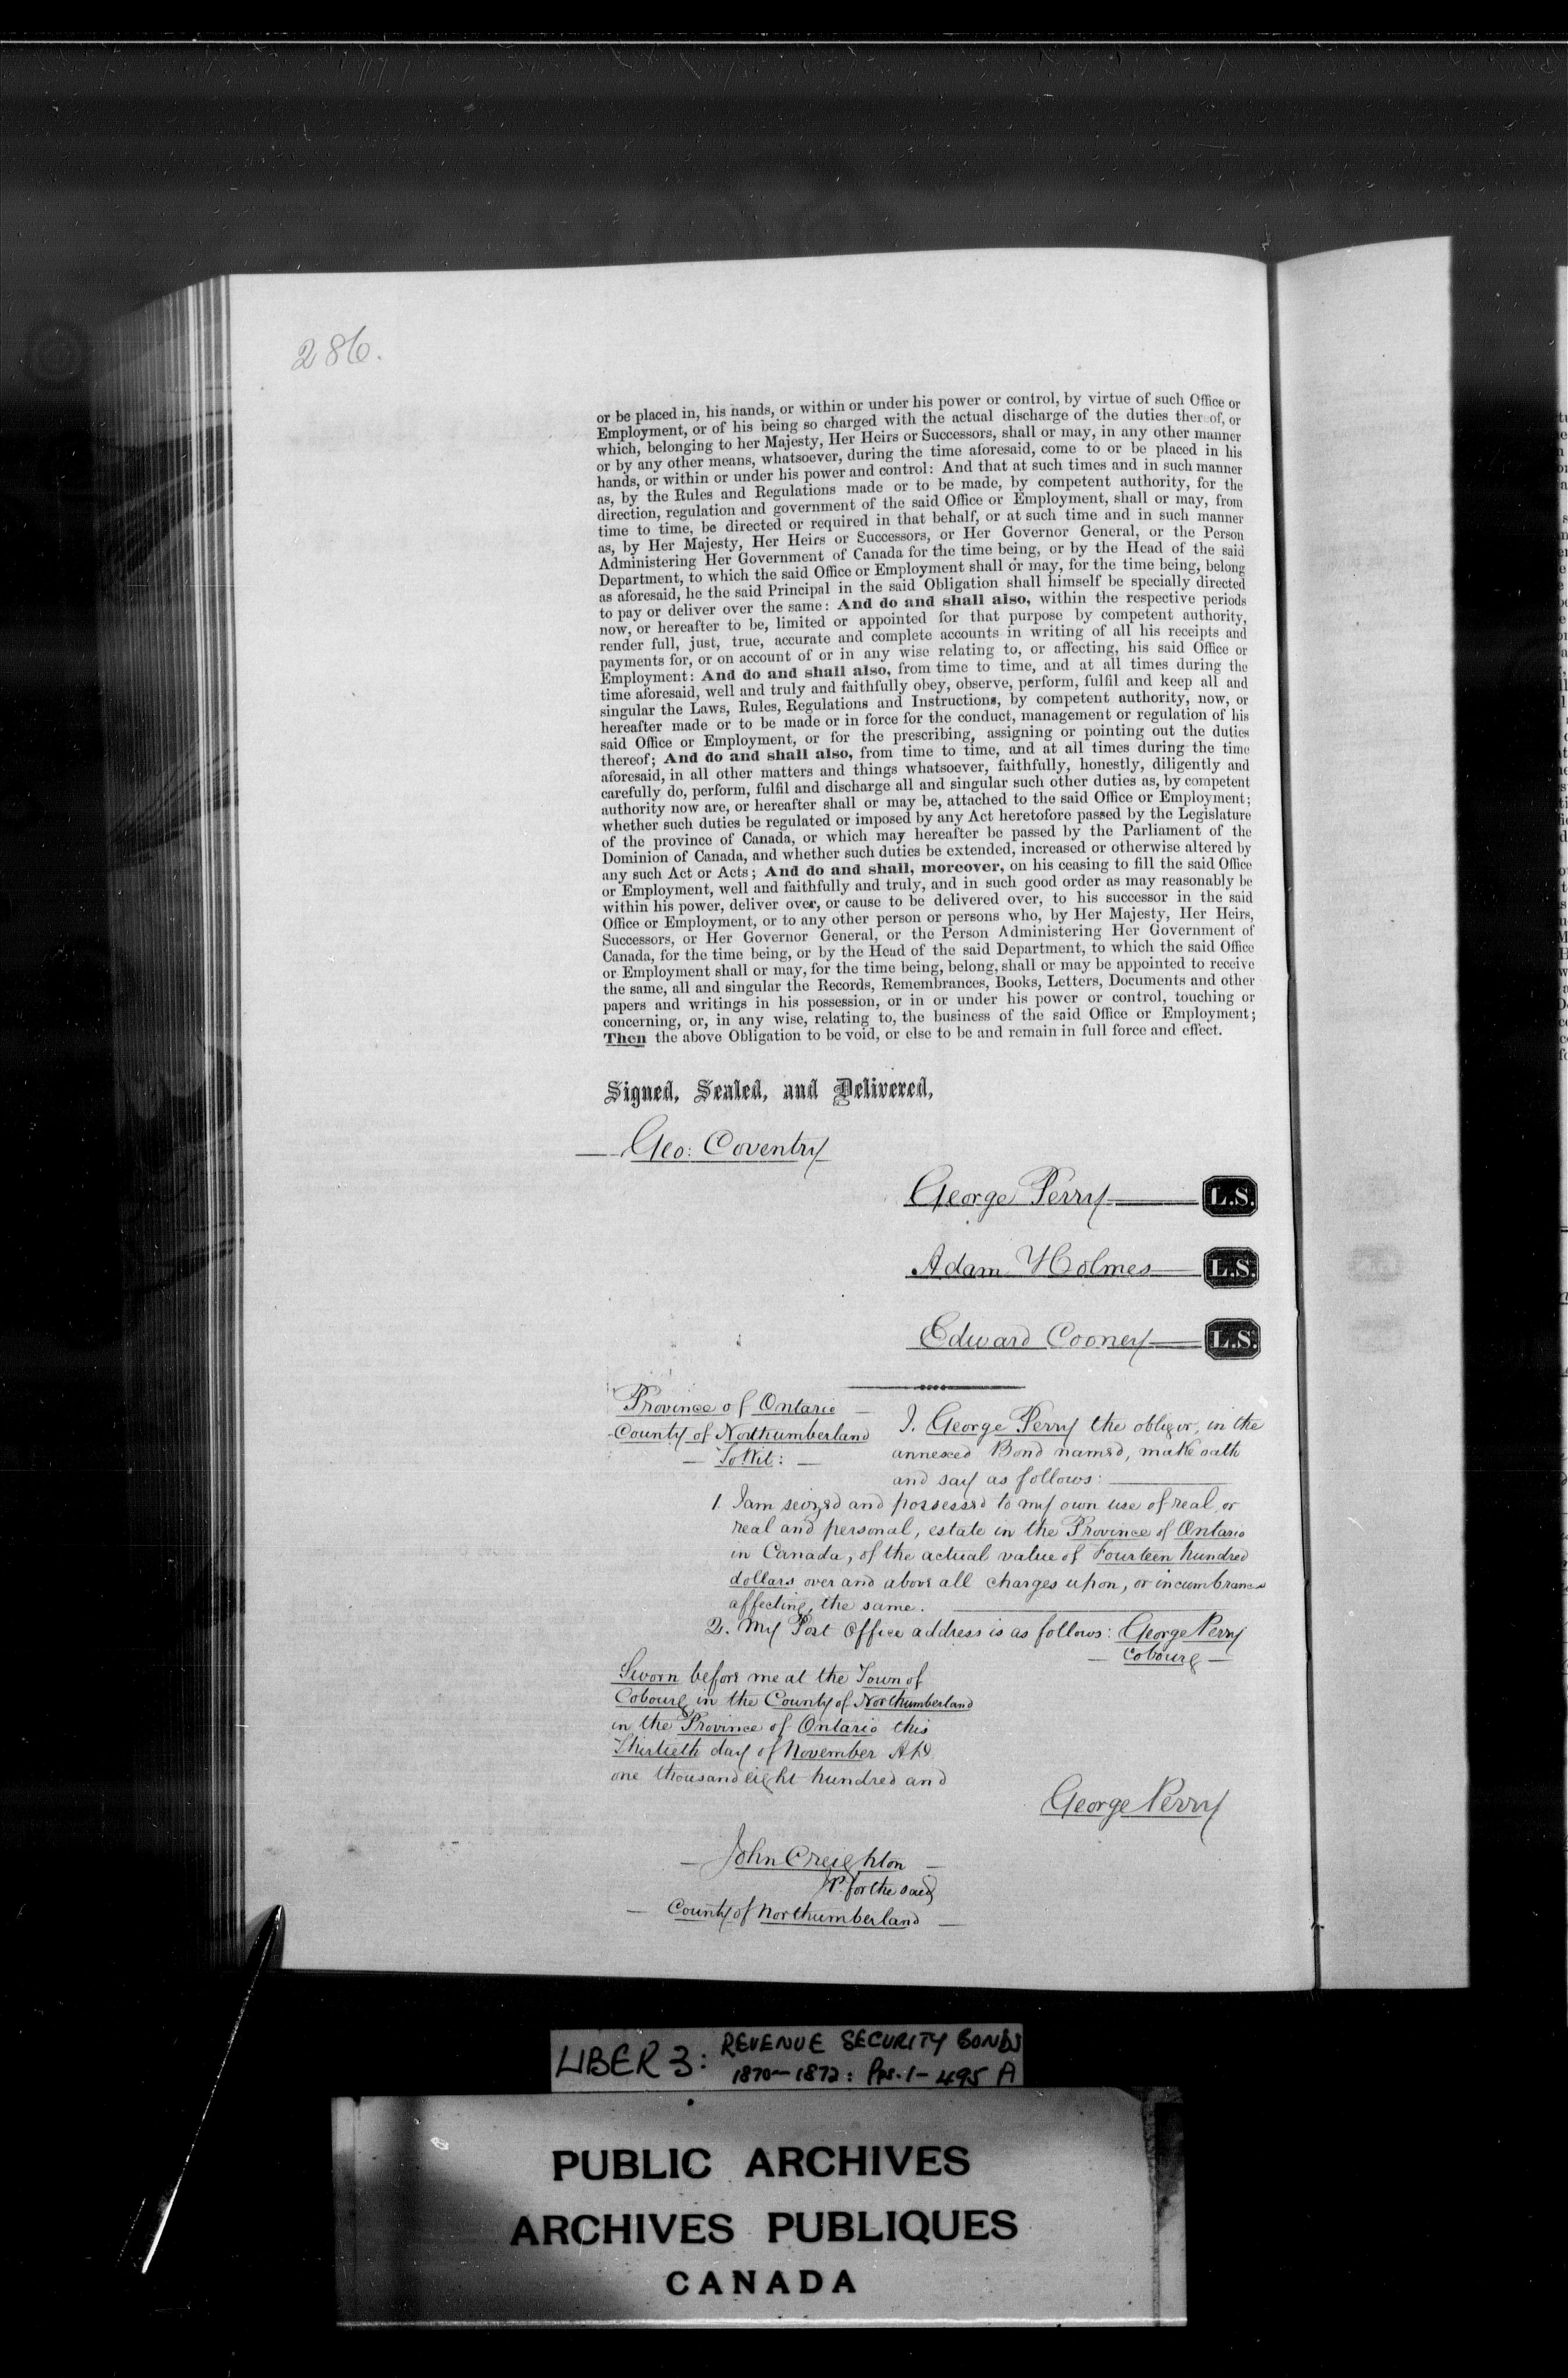 286.
or be placed in, his hands, or within or under his power or control, by virtue of such Office or
Employment, or of his being so charged with the actual discharge of the duties thereof, or
which, belonging to her Majesty, Her Heirs or Successors, shall or may, in any other manner
or by any other means, whatsoever, during the time aforesaid, come to or be placed in his
hands, or within or under his power and control: And that at such times and in such manner
as, by the Rules and Regulations made or to be made, by competent authority, for the
direction, regulation and government of the said Office or Employment, shall or may, from
time to time, be directed or required in that behalf, or at such time and in such manner
as, by Her Majesty, Her Heirs or Successors, or Her Governor General, or the Person
Administering Her Government of Canada for the time being, or by the Head of the said
Department, to which the said Office or Employment shall or may, for the time being, belong
as aforesaid, he the said Principal in the said Obligation shall himself be specially directed
to pay or deliver over the same: And do and shall also, within the respective periods
now, or hereafter to be, limited or appointed for that purpose by competent authority,
render full, just, true, accurate and complete accounts in writing of all his receipts and
payments for, or on account of or in any wise relating to, or affecting, his said Office or
Employment: And do and shall also, from time to time, and at all times during the
time aforesaid, well and truly and faithfully obey, observe, perform, fulfil and keep all and
singular the Laws, Rules, Regulations and Instructions, by competent authority, now, or
hereafter made or to be made or in force for the conduct, management or regulation of his
said Office or Employment, or for the prescribing, assigning or pointing out the duties
thereof; And do and shall also, from time to time, and at all times during the time
aforesaid, in all other matters and things whatsoever, faithfully, honestly, diligently and
carefully do, perform, fulfil and discharge all and singular such other duties as, by competent
authority now are, or hereafter shall or may be, attached to the said Office or Employment;
whether such duties be regulated or imposed by any Act heretofore passed by the Legislature
of the province of Canada, or which may hereafter be passed by the Parliament of the
Dominion of Canada, and whether such duties be extended, increased or otherwise altered by
any such Act or Acts; And do and shall, moreover, on his ceasing to fill the said Office
or Employment, well and faithfully and truly, and in such good order as may reasonably be
within his power, deliver over, or cause to be delivered over, to his successor in the said
Office or Employment, or to any other person or persons who, by Her Majesty, Her Heirs,
Successors, or Her Governor General, or the Person Administering Her Government of
Canada, for the time being, or by the Head of the said Department, to which the said Office
or Employment shall or may, for the time being, belong, shall or may be appointed to receive
the same, all and singular the Records, Remembrances, Books, Letters, Documents and other
papers and writings in his possession, or in or under his power or control, touching or
concerning, or, in any wise, relating to, the business of the said Office or Employment;
Then the above Obligation to be void, or else to be and remain in full force and effect.
Signed, Sealed, and Delivered,
Geo: Coventry
George Perry L.S.
Adam Holmes L.S.
Edward Cooney L.S.
Province of Ontario
County of Northumberland
To Wit:
I. George Perry the obligor, in the
annexed Bond named, make oath
and say as follows:
1. I am seized and possessed to my own use of real, or
real and personal, estate in the Province of Ontario
in Canada, of the actual value of Fourteen hundred
dollars over and above all charges upon, or incumbrances
affecting, the same.
2. My Post Office address is as follows: George Perry
Cobourg
Sworn before me at the Town of
Cobourg in the County of Northumberland
in the Province of Ontario this
Thirtieth day of November A.D.
one thousand eight hundred and
George Perry
John Creighton
J.P. for the said
County of Northumberland
LIBER 3: REVENUE SECURITY BONDS
1870-1872: Pps. 1-495 A
PUBLIC ARCHIVES
ARCHIVES PUBLIQUES
CANADA